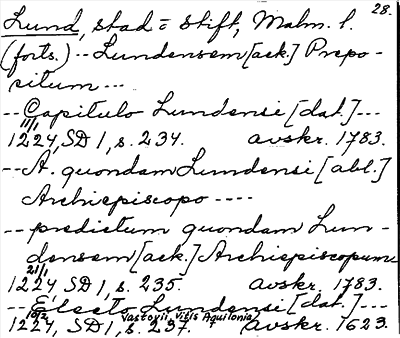 28.
Lund, stad = stift, Malm. l.
(forts.) -- Lundensem [ack.] Prepo-
situm ---
-- Capitulo Lundensi [dat.] ---
11/1
1224, SD 1, s. 234. avskr. 1783.
-- A. quondam Lundensi [abl.]
Archiepiscopo ----
-- predictum quondam Lun-
densem [ack.] Archiepiscopum
21/1
1224, SD 1, s. 235. avskr. 1783.
-- Electo Lundensi [dat.] ---
Aquilonia
1224, SD 1, s. 237. avskr. 1623.